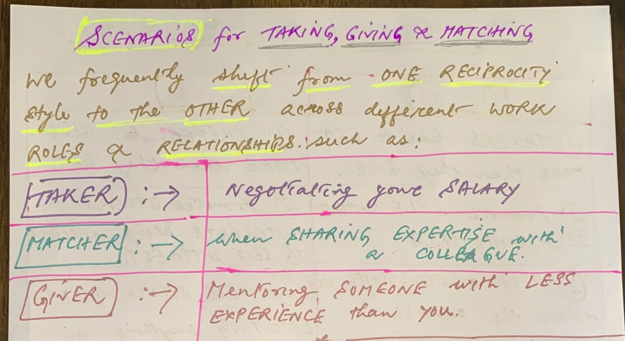 SCENARIOS for TAKING, GIVING & MATCHING
We frequently shift from ONE RECIPROCITY
style to the OTHER across different WORK
ROLES & RELATIONSHIPS: such as:
TAKER :→ Negotiating your SALARY
MATCHER :→ when SHARING EXPERTISE with
a COLLEAGUE.
GIVER :→ Mentoring SOMEONE with LESS
EXPERIENCE than you.